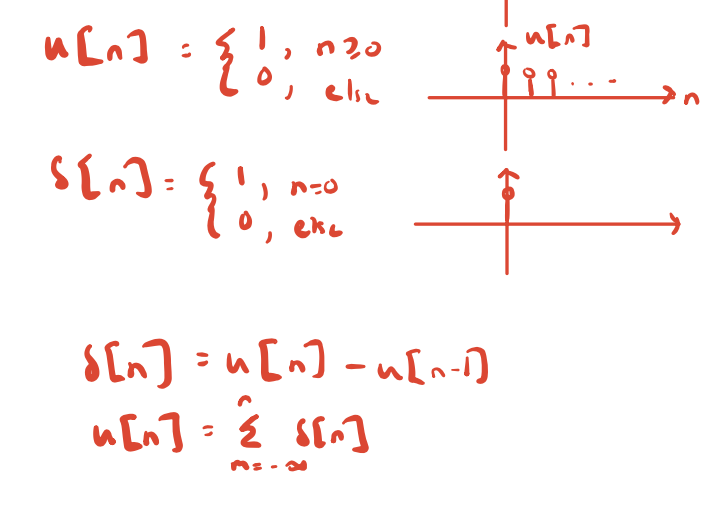 u[n] = { 1, n≥0
0, else
u[n]
n
δ[n] = { 1, n=0
0, else
δ[n] = u[n] - u[n-1]
u[n] = n∑m=-∞ δ[n]